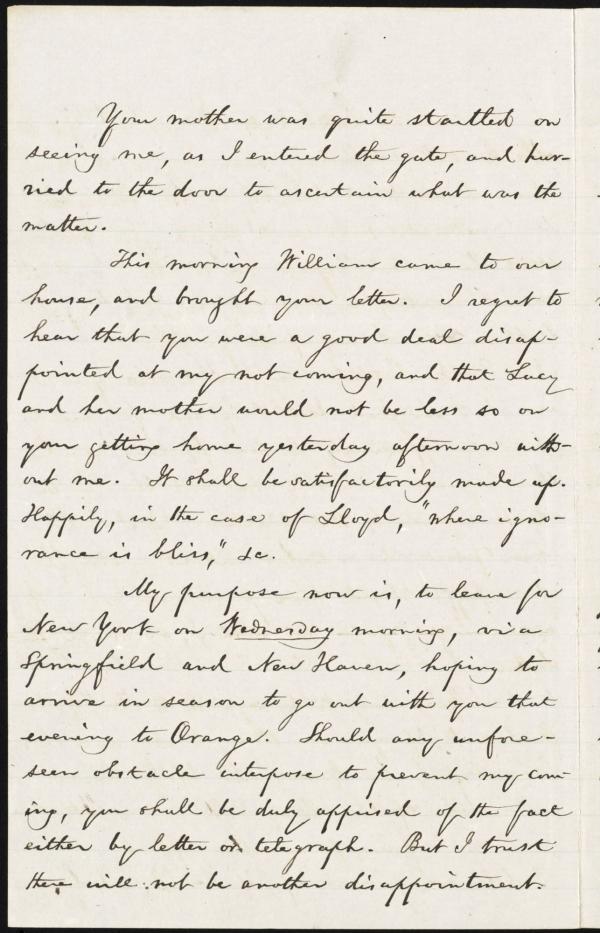 Your mother was quite startled on
seeing me, as I entered the gate, and hur-
ried to the door to ascertain what was the
matter.
This morning William came to our
house, and brought your letter. I regret to
hear that you were a good deal disap-
pointed at my not coming, and that Lucy
and her mother would not be less so on
your getting home yesterday afternoon with-
out me. It shall be satisfactorily made up.
Happily, in the case of Lloyd, "where igno-
rance is bliss," &c.
My purpose now is, to leave for
New York on Wednesday morning, via
Springfield and New Haven, hoping to
arrive in season to go out with you that
evening to Orange. Should any unfore-
seen obstacle interpose to prevent my com-
ing, you shall be duly apprised of the fact
either by letter or telegraph. But I trust
there will not be another disappointment.